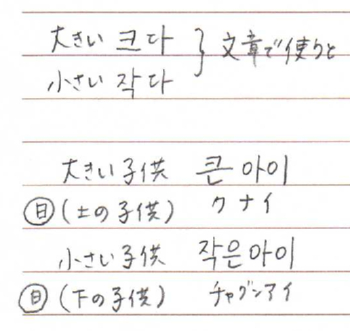 大きい 크다 } 文章で使うと
小さい 작다
大きい子供 큰 아이
日 (上の子供) クナイ
小さい子供 작은 아이
日 (下の子供) チャグンアイ